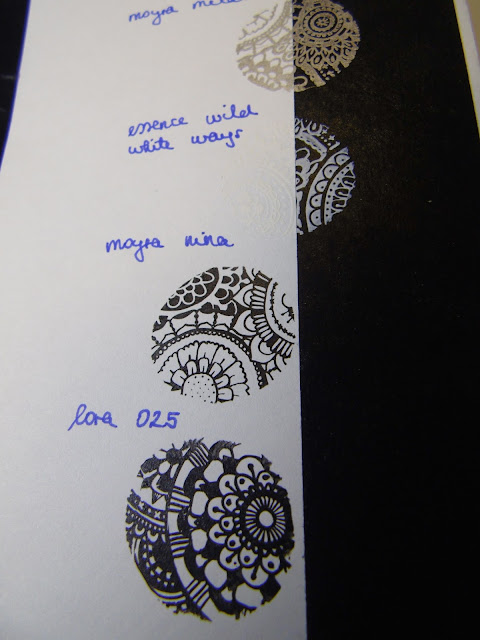 moyra
essence wild
white ways
moyra nina
lora 025